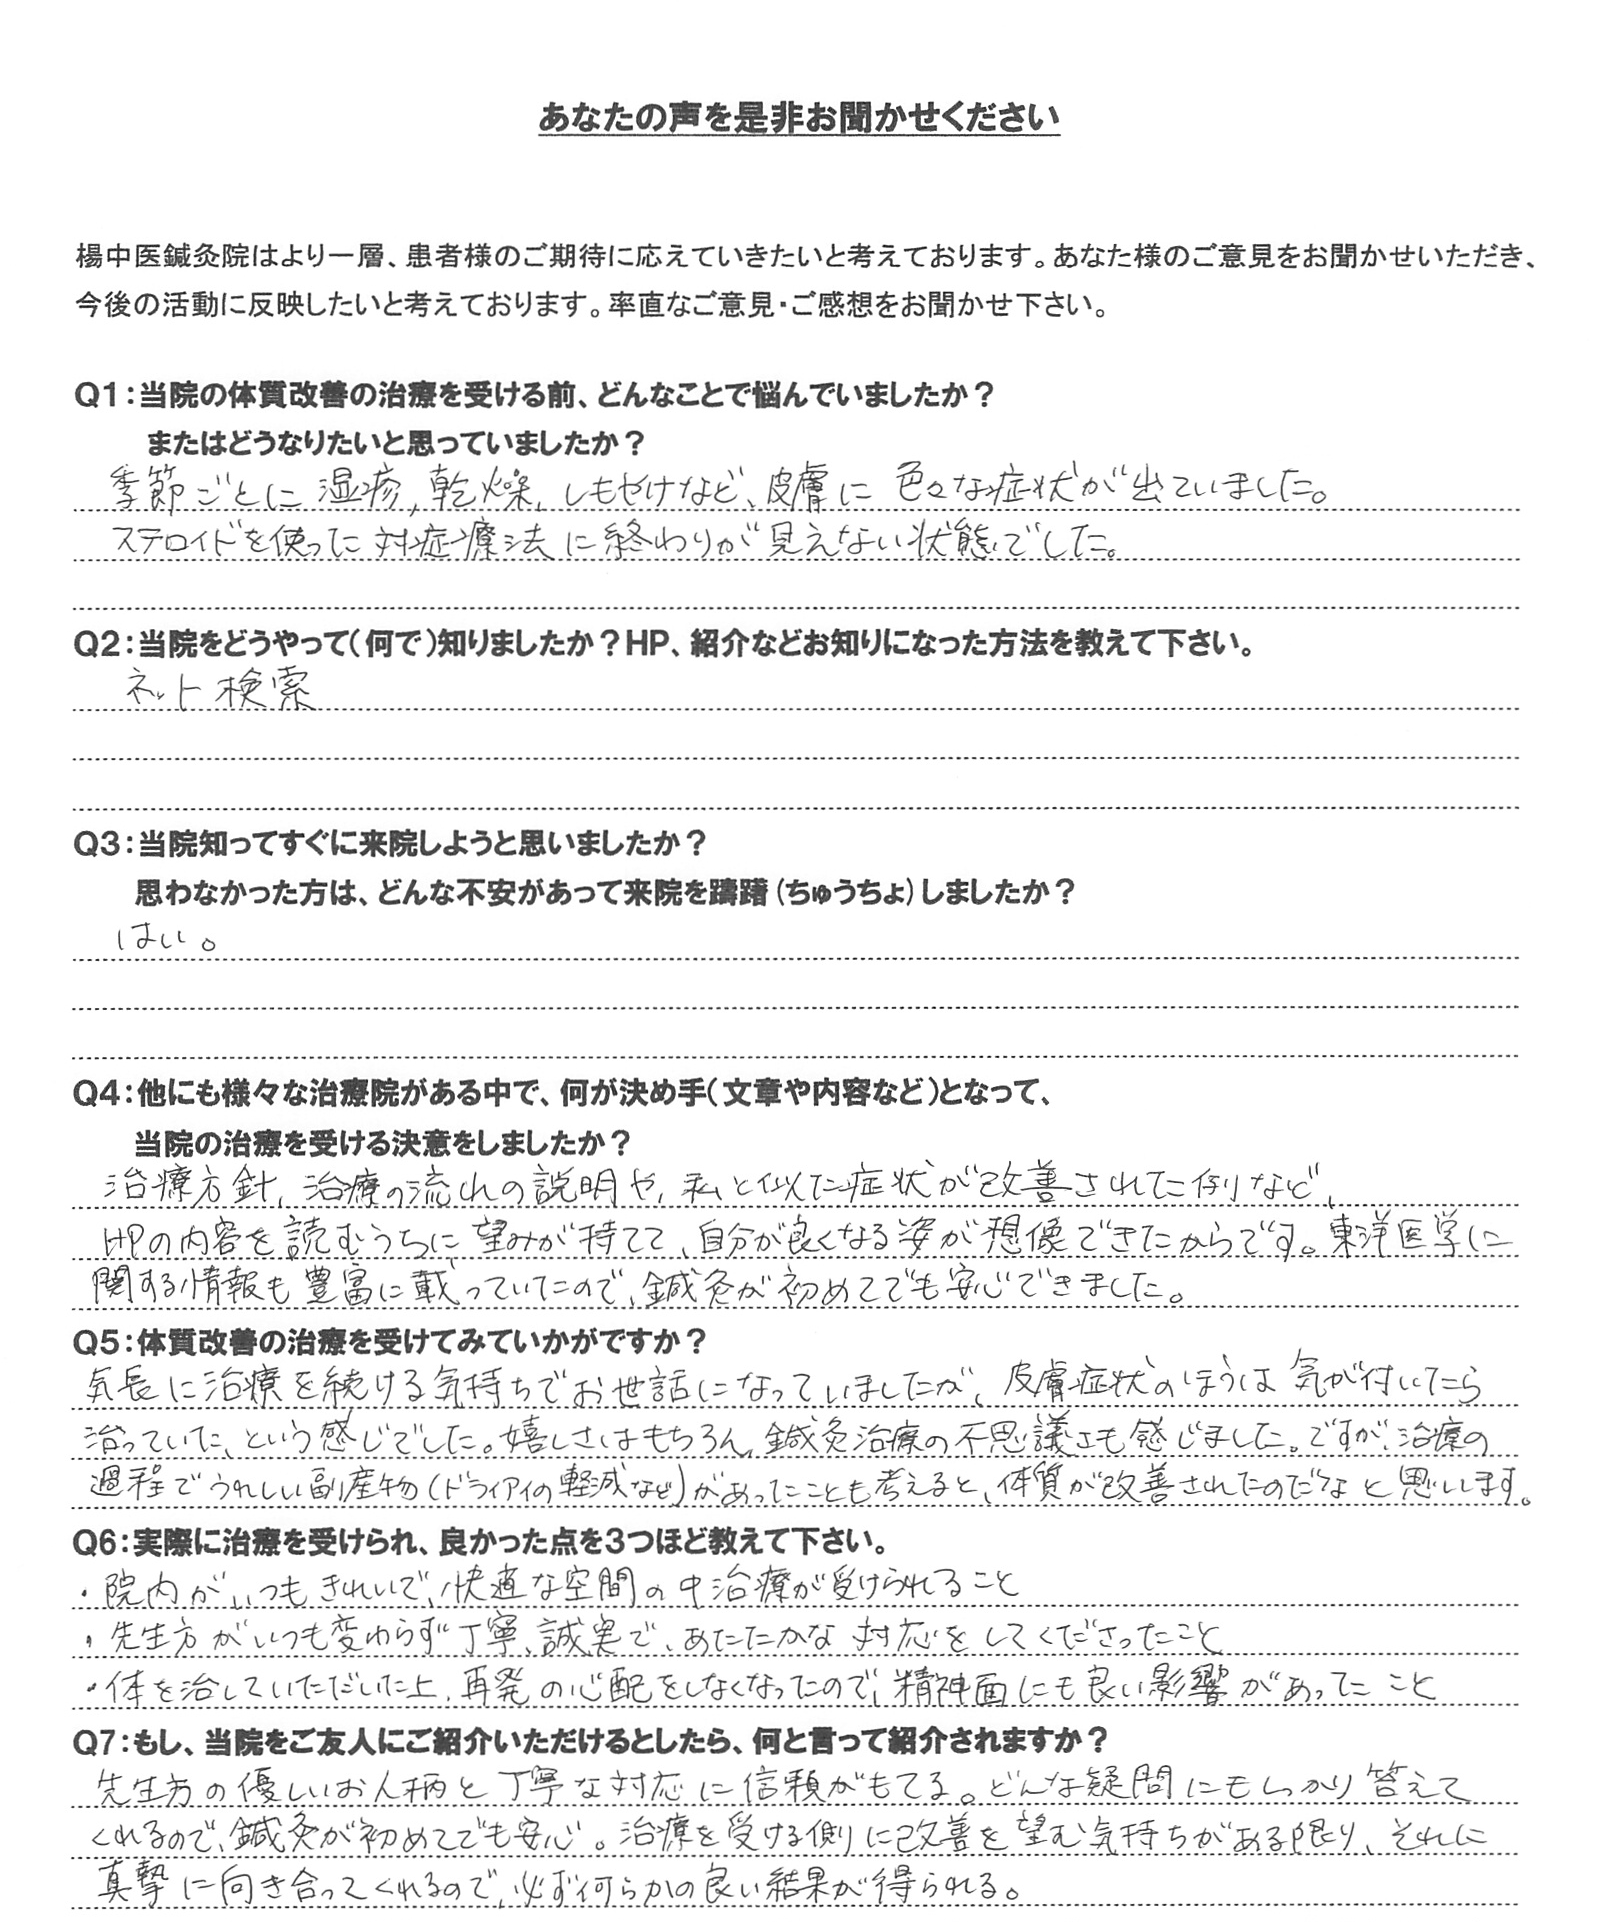 あなたの声を是非お聞かせください
楊中医鍼灸院はより一層、患者様のご期待に応えていきたいと考えております。あなた様のご意見をお聞かせいただき、
今後の活動に反映したいと考えております。率直なご意見・ご感想をお聞かせ下さい。
Q1：当院の体質改善の治療を受ける前、どんなことで悩んでいましたか？
またはどうなりたいと思っていましたか？
季節ごとに湿疹,乾燥,しもやけなど、皮膚に色々な症状が出ていました。
ステロイドを使った対症療法に終わりが見えない状態でした。
Q2：当院をどうやって（何で）知りましたか？HP、紹介などお知りになった方法を教えて下さい。
ネット検索
Q3：当院知ってすぐに来院しようと思いましたか？
思わなかった方は、どんな不安があって来院を躊躇（ちゅうちょ）しましたか？
はい。
Q4：他にも様々な治療院がある中で、何が決め手（文章や内容など）となって、
当院の治療を受ける決意をしましたか？
治療方針、治療の流れの説明や,私と似た症状が改善された例など、
HPの内容を読むうちに望みが持てて、自分が良くなる姿が想像できたからです。東洋医学に
関する情報も豊富に載っていたので、鍼灸が初めてでも安心できました。
Q5：体質改善の治療を受けてみていかがですか？
気長に治療を続ける気持ちでお世話になっていましたが、皮膚症状のほうは気が付いたら
治っていた、という感じでした。嬉しさはもちろん,鍼灸治療の不思議さも感じました。ですが、治療の
過程でうれしい副産物（ドライアイの軽減など）があったことも考えると、体質が改善されたのだなと思いします。
Q6：実際に治療を受けられ、良かった点を3つほど教えて下さい。
・院内がいつもきれいで、快適な空間の中治療が受けられること
・先生方がいつも変わらず丁寧、誠実で、あたたかな対応をしてくださったこと
・体を治していただいた上、再発の心配をしなくなったので、精神面にも良い影響があったこと
Q7：もし、当院をご友人にご紹介いただけるとしたら、何と言って紹介されますか？
先生方の優しいお人柄と丁寧な対応に信頼がもてる。どんな疑問にもしっかり答えて
くれるので、鍼灸が初めてでも安心。治療を受ける側に改善を望む気持ちがある限り、それに
真摯に向き合ってくれるので、必ず何らかの良い結果が得られる。